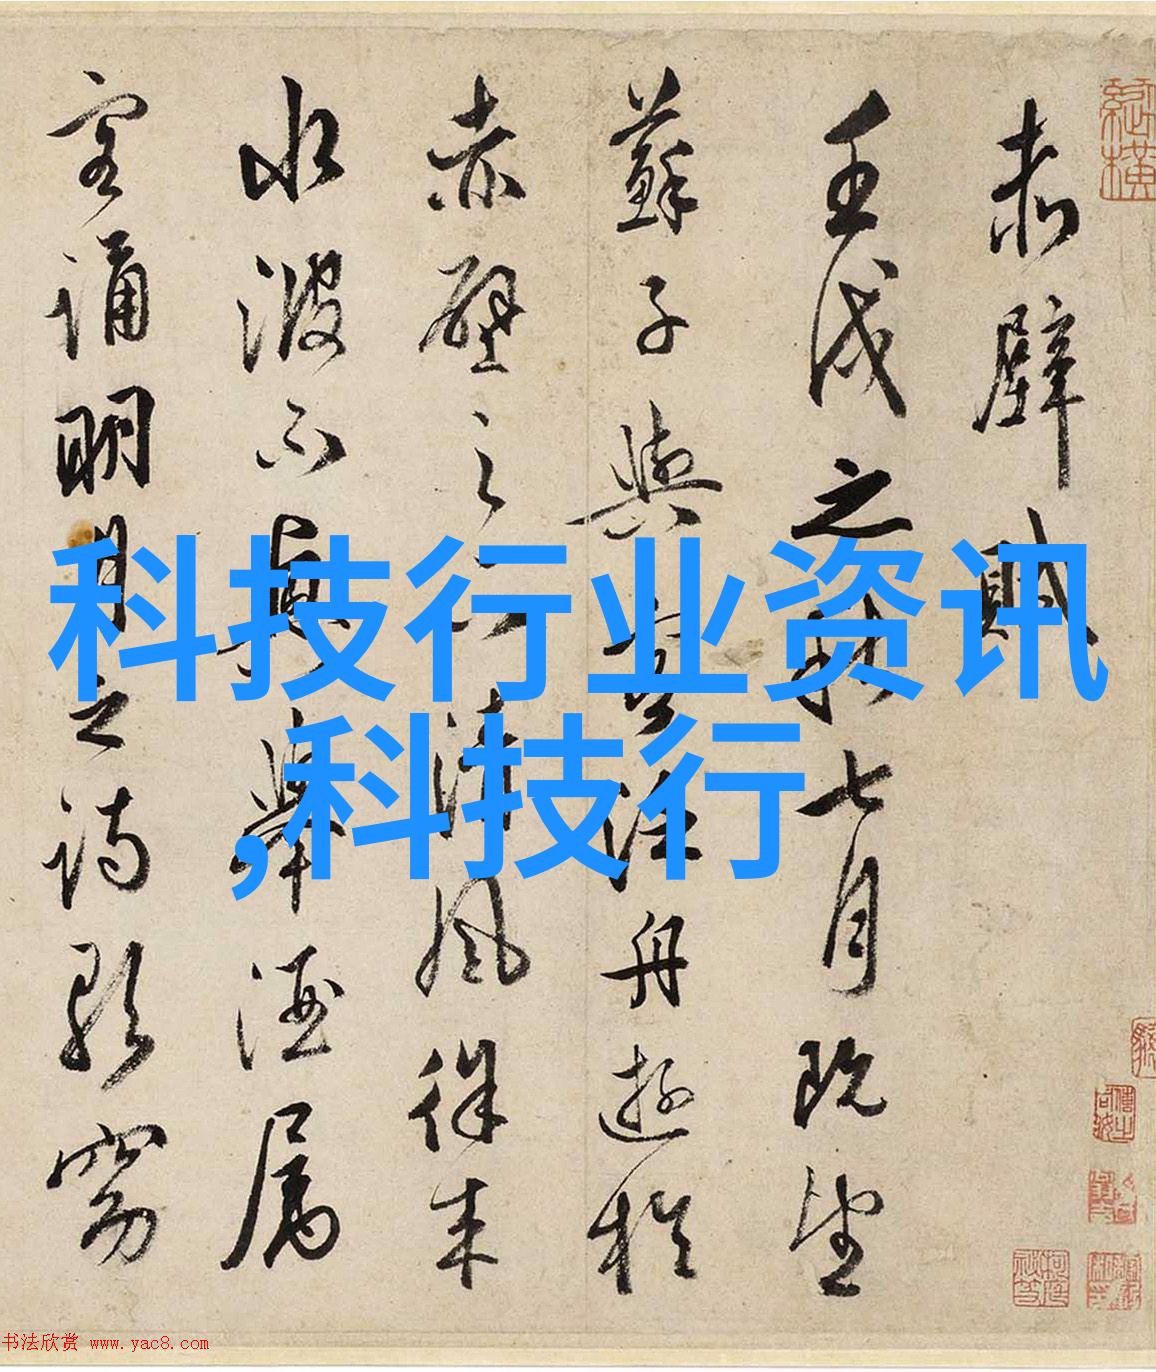 赤壁賦
壬戌之秋七月既望
蘇子與客泛舟遊於
赤壁之下清風徐来
水波不興舉酒属
客誦明月之詩歌窈
科技行业资讯
,科技行
书法欣赏 www.yac8.com